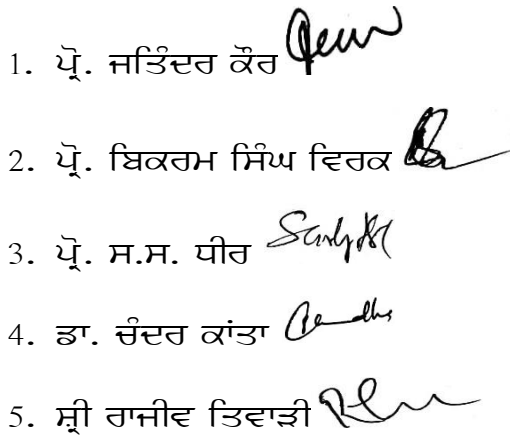 1. ਪ੍ਰੋ. ਜਤਿੰਦਰ ਕੌਰ
2. ਪ੍ਰੋ. ਬਿਕਰਮ ਸਿੰਘ ਵਿਰਕ
3. ਪ੍ਰੋ. ਸ.ਸ. ਧੀਰ
4. ਡਾ. ਚੰਦਰ ਕਾਂਤਾ
5. ਸ਼੍ਰੀ ਰਾਜੀਵ ਤਿਵਾੜੀ